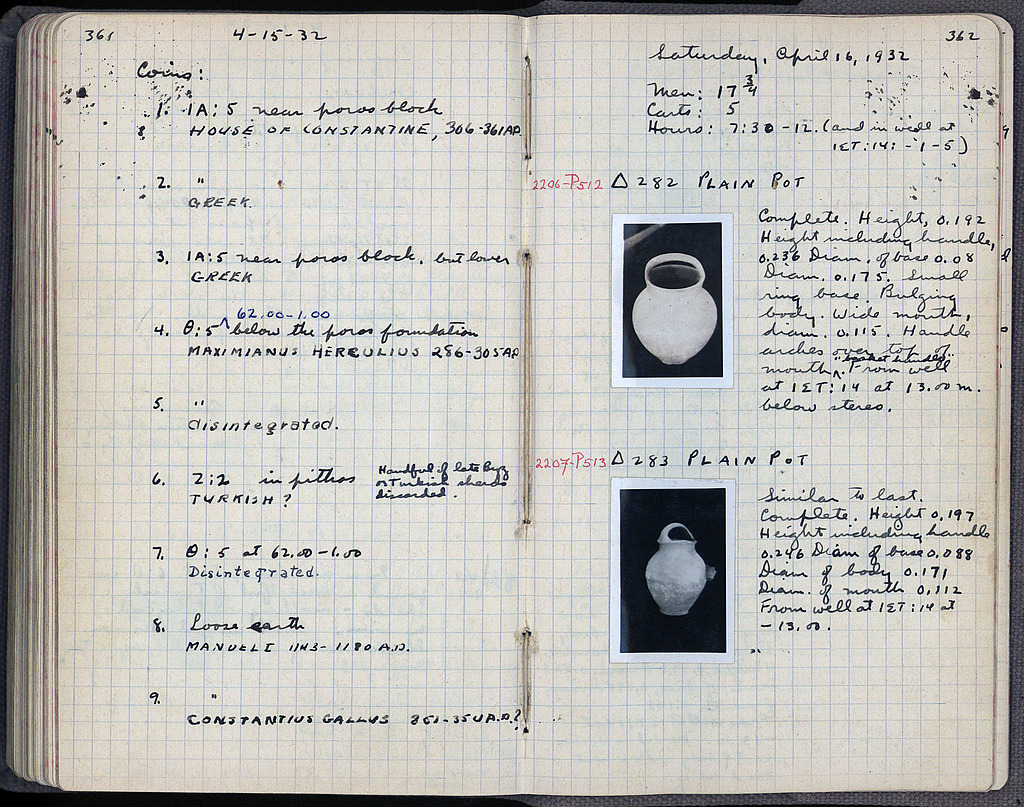 361
4-15-32
Coins:
1. IA:5 near poros block
HOUSE OF CONSTANTINE, 306-361 A.D.
2. "
GREEK
3. IA:5 near poros block, but lower
GREEK
62.00-1.00
4. Θ:5 ^ below the poros foundation
MAXIMIANUS HERCULIUS 286-305 A.D.
5. "
disintegrated.
6. Z:2 in pithos
TURKISH?
Handful of late Byz
or Turkish sherds
discarded.
7. Θ:5 at 62.00-1.00
Disintegrated.
8. Loose earth
MANUEL I 1143-1180 A.D.
9. "
CONSTANTIUS GALLUS 351-354 A.D.?
362
Saturday, April 16, 1932
Men: 17 3/4
Carts: 5
Hours: 7:30-12. (and in well at
IΣT:14: -1-5)
2206-P512 Δ 282 PLAIN POT
Complete. Height, 0.192
Height including handle,
0.236 Diam. of base 0.08
Diam. 0.175. Small
ring base. Bulging
body. Wide mouth,
diam. 0.115. Handle
arches over top of
"basket handled"
mouth ^. From well
at IΣT:14 at 13.00 m.
below stereo.
2207-P513 Δ 283 PLAIN POT
Similar to last.
Complete. Height 0.197
Height including handle
0.246 Diam of base 0.088
Diam of body 0.171
Diam. of mouth 0.112
From well at IΣT:14 at
-13.00.